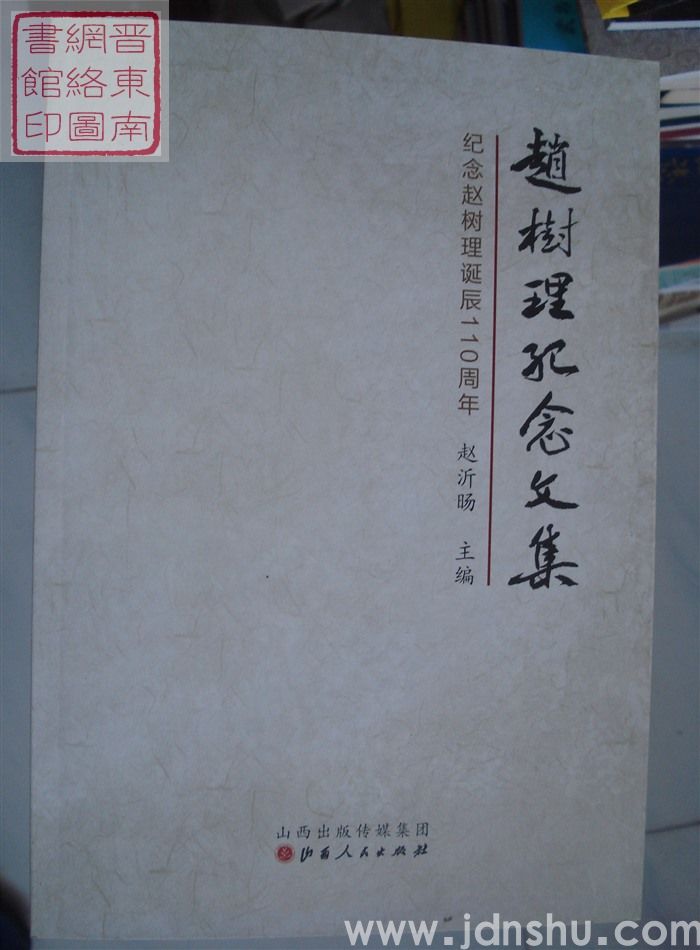 晋東南
網絡圖
書館印
趙樹理紀念文集
纪念赵树理诞辰110周年
赵沂旸 主编
山西出版传媒集团
山西人民出版社
www.jdnshu.com